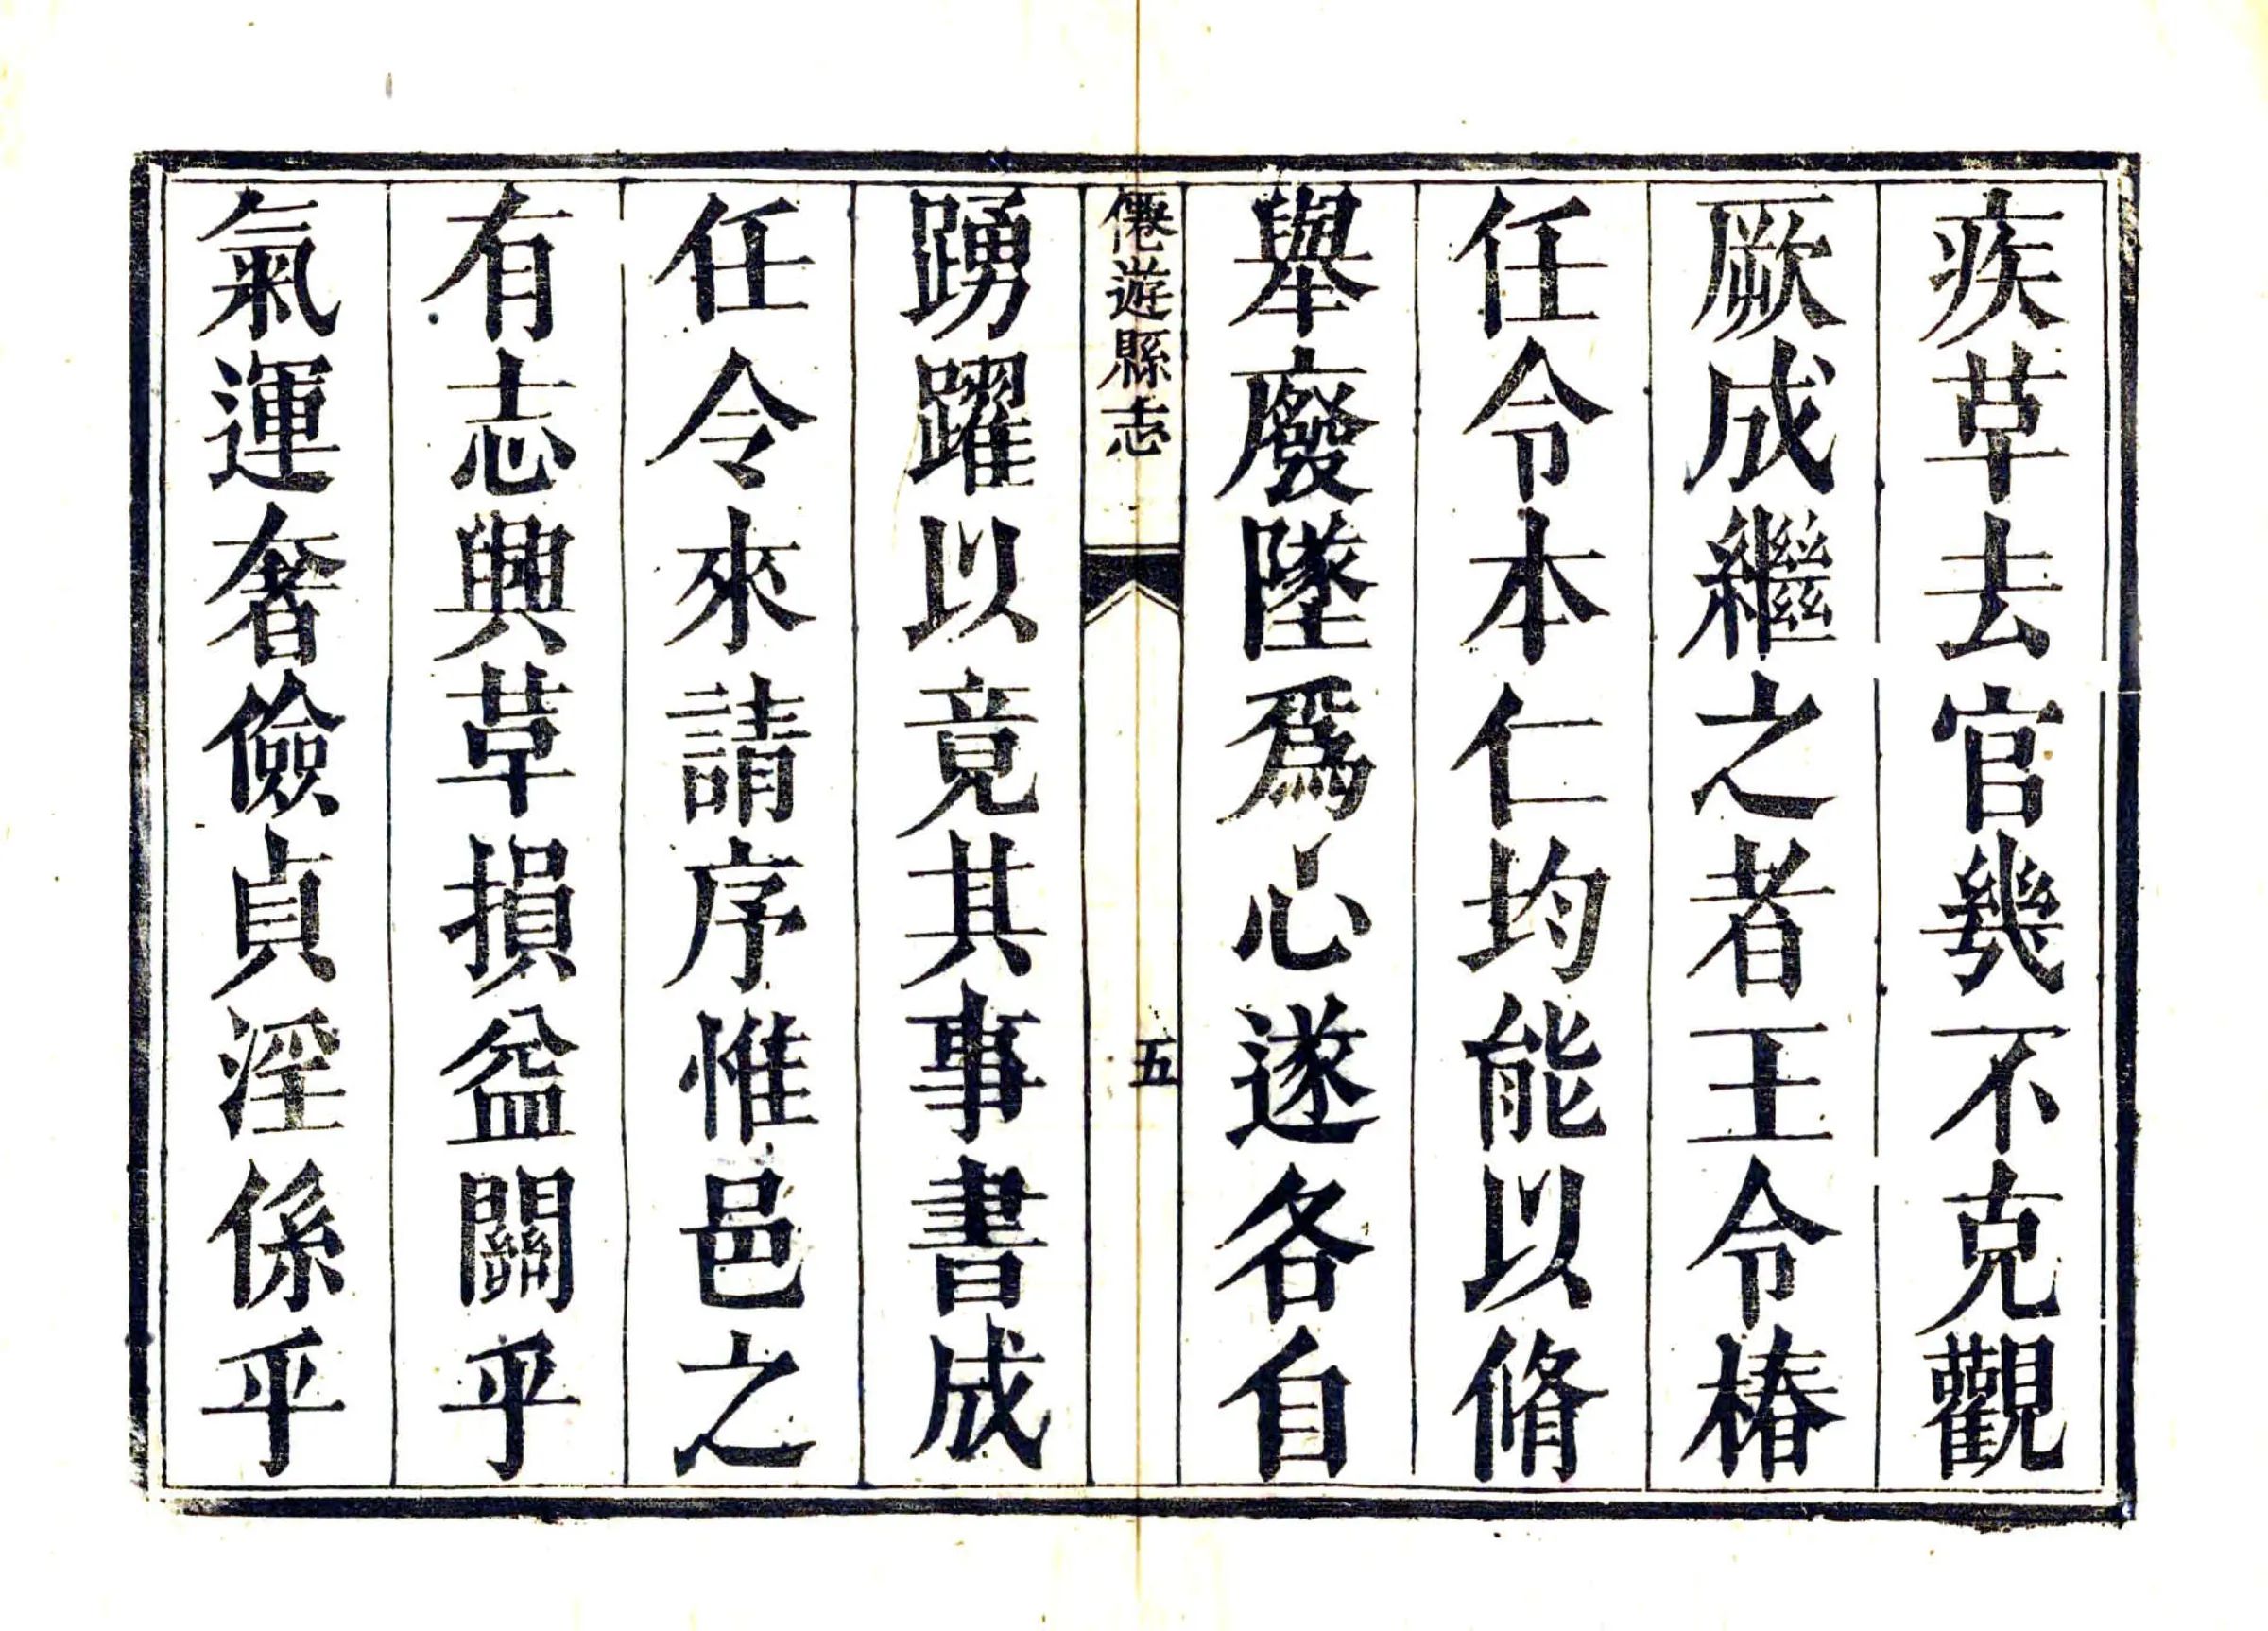 疾草去官幾不克觀
厥成繼之者王令椿
任令本仁均能以脩
舉廢墜爲心遂各自
僊遊縣志
五
踴躍以竟其事書成
任令來請序惟邑之
有志興草損益關乎
氣運奢儉貞淫係乎